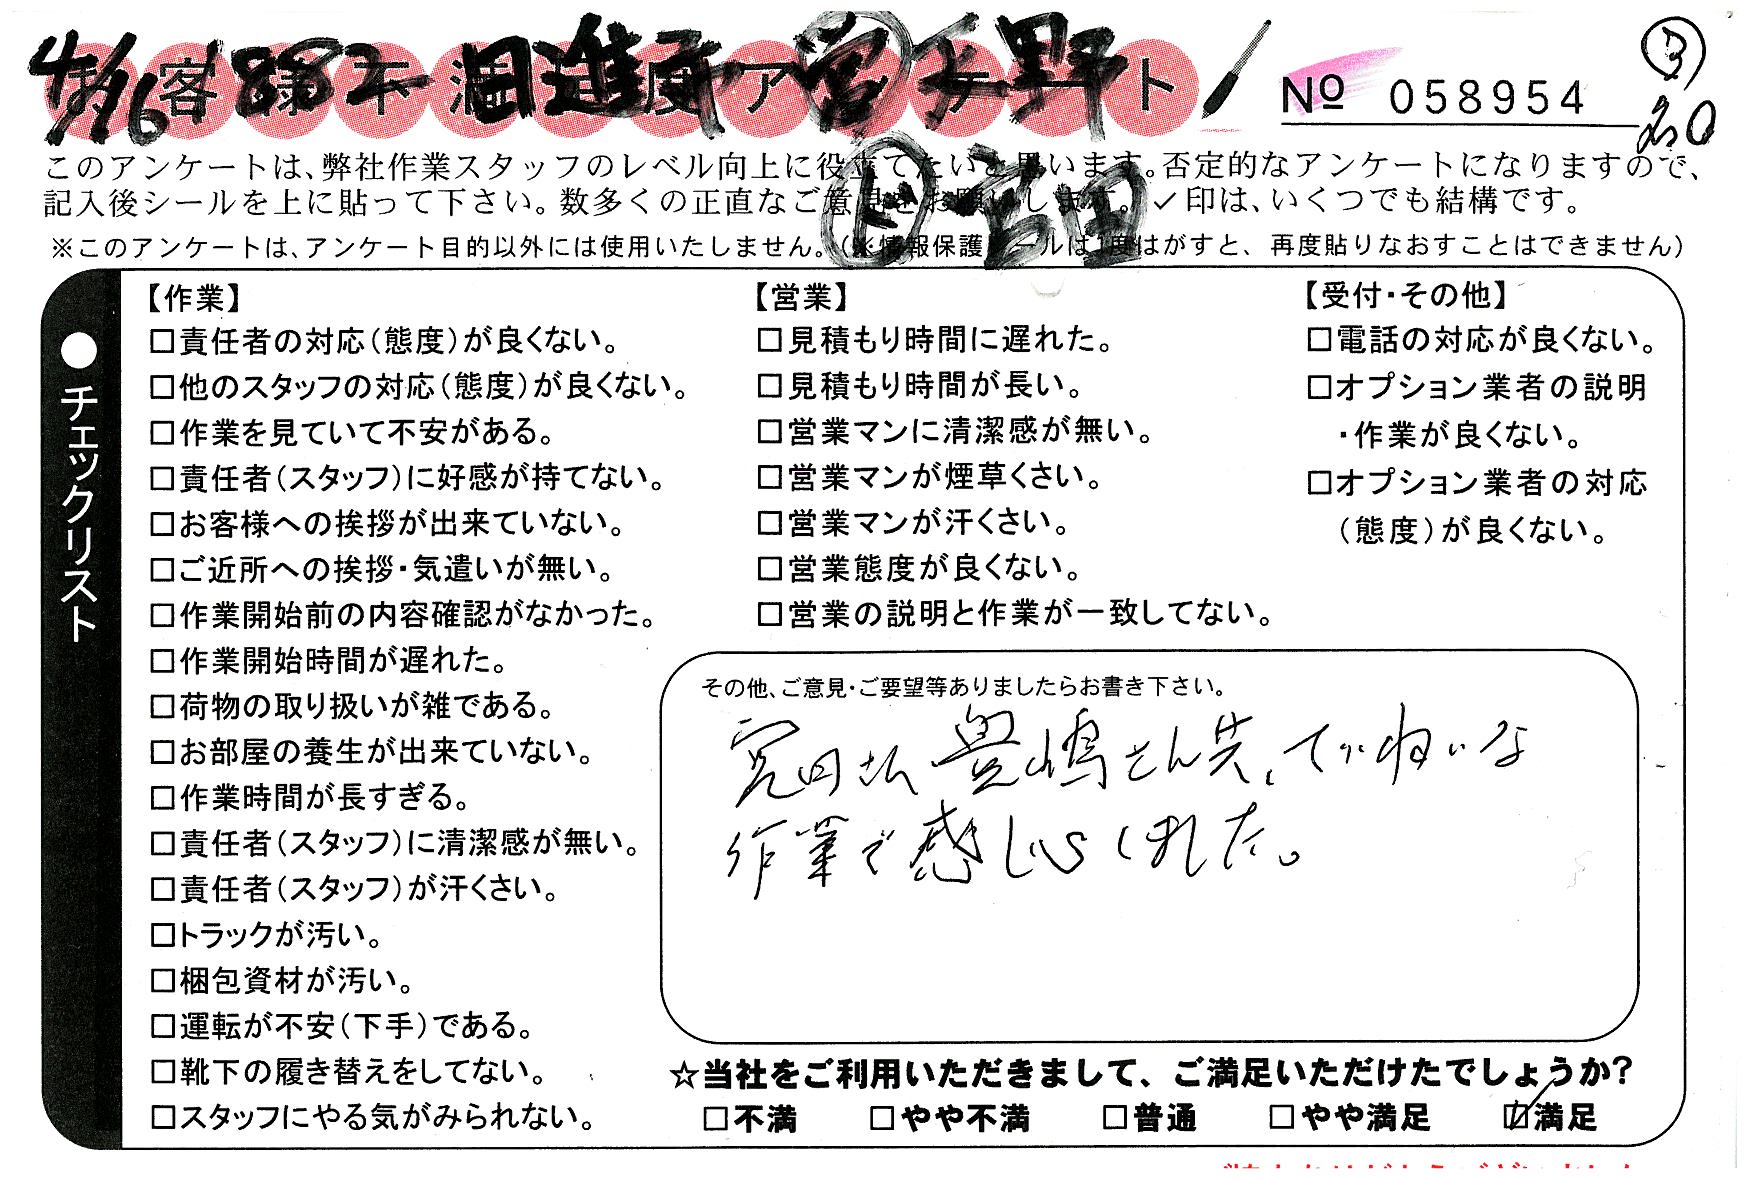 4/16 882 日進市 営 水野
お客様不満足度アンケート
No 058954
③
名0
ト 富田
このアンケートは、弊社作業スタッフのレベル向上に役立てたいと思います。否定的なアンケートになりますので、
記入後シールを上に貼って下さい。数多くの正直なご意見をお願いします。✓印は、いくつでも結構です。
※このアンケートは、アンケート目的以外には使用いたしません。(※情報保護シールは1度はがすと、再度貼りなおすことはできません)
●チェックリスト
【作業】
□責任者の対応(態度)が良くない。
□他のスタッフの対応(態度)が良くない。
□作業を見ていて不安がある。
□責任者(スタッフ)に好感が持てない。
□お客様への挨拶が出来ていない。
□ご近所への挨拶・気遣いが無い。
□作業開始前の内容確認がなかった。
□作業開始時間が遅れた。
□荷物の取り扱いが雑である。
□お部屋の養生が出来ていない。
□作業時間が長すぎる。
□責任者(スタッフ)に清潔感が無い。
□責任者(スタッフ)が汗くさい。
□トラックが汚い。
□梱包資材が汚い。
□運転が不安(下手)である。
□靴下の履き替えをしてない。
□スタッフにやる気がみられない。
【営業】
□見積もり時間に遅れた。
□見積もり時間が長い。
□営業マンに清潔感が無い。
□営業マンが煙草くさい。
□営業マンが汗くさい。
□営業態度が良くない。
□営業の説明と作業が一致してない。
【受付・その他】
□電話の対応が良くない。
□オプション業者の説明
・作業が良くない。
□オプション業者の対応
(態度)が良くない。
その他、ご意見・ご要望等ありましたらお書き下さい。
冨田さん 豊嶋さん共、ていねいな
作業で感心しました。
☆当社をご利用いただきまして、ご満足いただけたでしょうか?
□不満 □やや不満 □普通 □やや満足 ☑満足